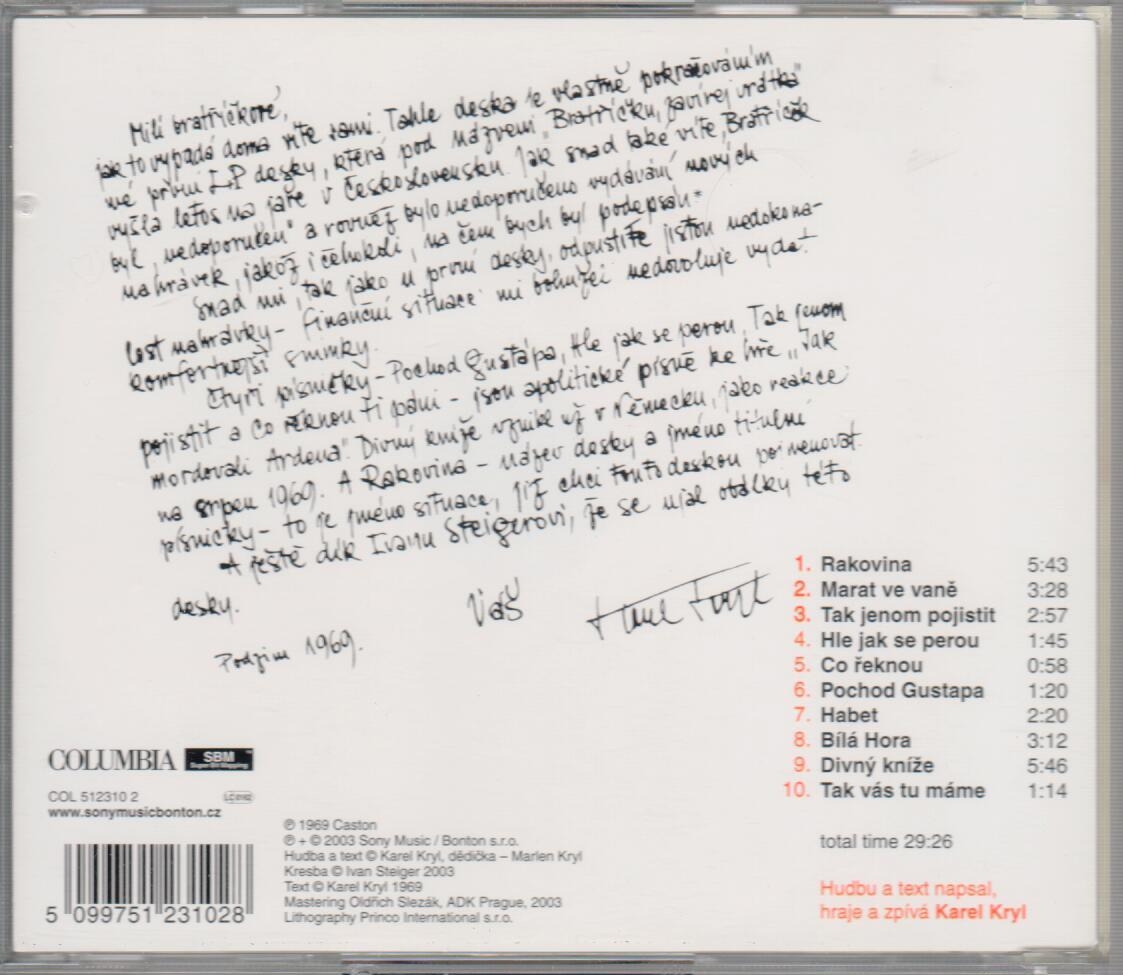 Milí bratříčkové,
jak to vypadá doma víte sami. Tahle deska je vlastně pokračováním
mé první LP desky, která pod názvem „Bratříčku, zavírej vrátka"
vyšla letos na jaře v Československu. Jak snad také víte, Bratříček
byl „nedoporučen" a rovněž bylo nedoporučeno vydávání nových
nahrávek, jakož i čehokoli, na čem bych byl podepsán.
Snad mi, tak jako u první desky, odpustíte jistou nedokona-
lost nahrávky - finanční situace mi bohužel nedovoluje vydat
komfortnější snímky.
Čtyři písničky - Pochod Gustapa, Hle jak se perou, Tak jenom
pojistit a Co řeknou ti páni - jsou apolitické písně ke hře „Jak
mordovali Ardena". Divný kníže vznikl už v Německu, jako reakce
na srpen 1969. A Rakovina - název desky a jméno titulní
písničky - to je jméno situace, již chci touto deskou pojmenovat.
A ještě dík Ivanu Steigerovi, že se ujal obálky této
desky.
Váš
Karel Kryl
Podzim 1969.
1. Rakovina 5:43
2. Marat ve vaně 3:28
3. Tak jenom pojistit 2:57
4. Hle jak se perou 1:45
5. Co řeknou 0:58
6. Pochod Gustapa 1:20
7. Habet 2:20
8. Bílá Hora 3:12
9. Divný kníže 5:46
10. Tak vás tu máme 1:14
total time 29:26
Hudbu a text napsal,
hraje a zpívá Karel Kryl
COLUMBIA
SBM
Super Bit Mapping
COL 512310 2
LC 0162
www.sonymusicbonton.cz
℗ 1969 Caston
℗ + © 2003 Sony Music / Bonton s.r.o.
Hudba a text © Karel Kryl, dědička – Marlen Kryl
Kresba © Ivan Steiger 2003
Text © Karel Kryl 1969
Mastering Oldřich Slezák, ADK Prague, 2003
Lithography Princo International s.r.o.
5 099751 231028